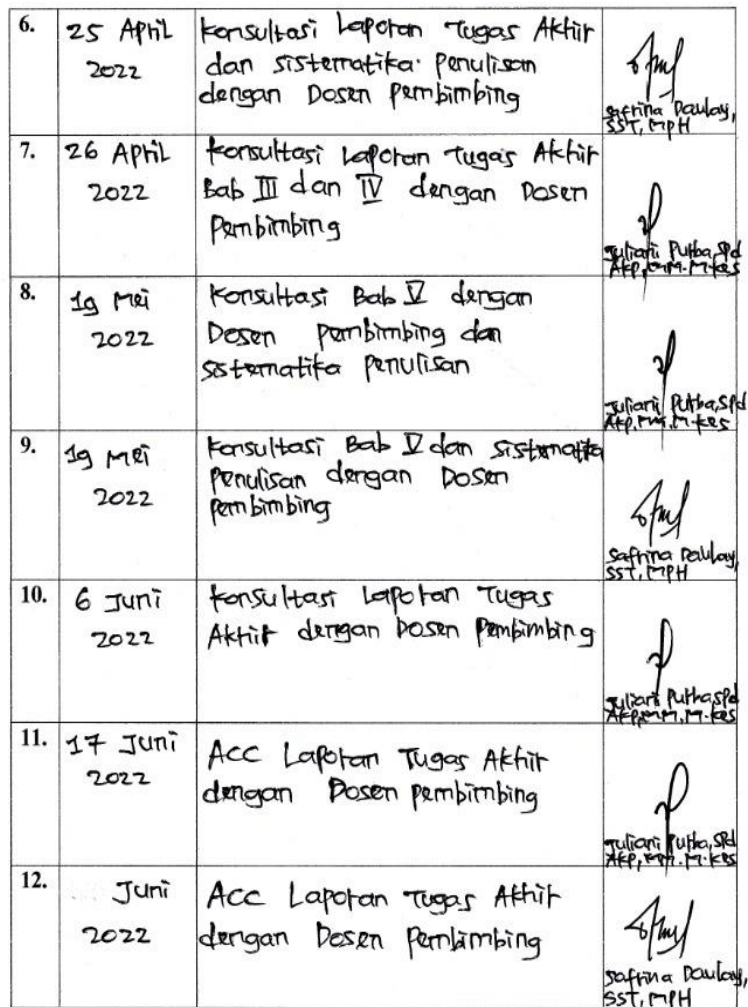 6.
25 April
2022
Konsultasi Laporan Tugas Akhir
dan sistematika penulisan
dengan Dosen pembimbing
Safrina Daulay,
SST, MPH
7.
26 April
2022
Konsultasi Laporan Tugas Akhir
Bab III dan IV dengan Dosen
Pembimbing
Juliani Purba, Spd
Akp, MM. M.kes
8.
19 Mei
2022
Konsultasi Bab V dengan
Dosen pembimbing dan
sistematika penulisan
Juliani Purba, Spd
Akp, MM. M.kes
9.
19 Mei
2022
Konsultasi Bab V dan sistematika
Penulisan dengan Dosen
pembimbing
Safrina Daulay,
SST, MPH
10.
6 Juni
2022
Konsultasi Laporan Tugas
Akhir dengan Dosen Pembimbing
Juliani Purba, Spd
Akp, MM, M.kes
11.
17 Juni
2022
ACC Laporan Tugas Akhir
dengan Dosen pembimbing
Juliani Purba, Spd
Akp, MM. M.kes
12.
Juni
2022
ACC Laporan Tugas Akhir
dengan Dosen Pembimbing
Safrina Daulay,
SST, MPH